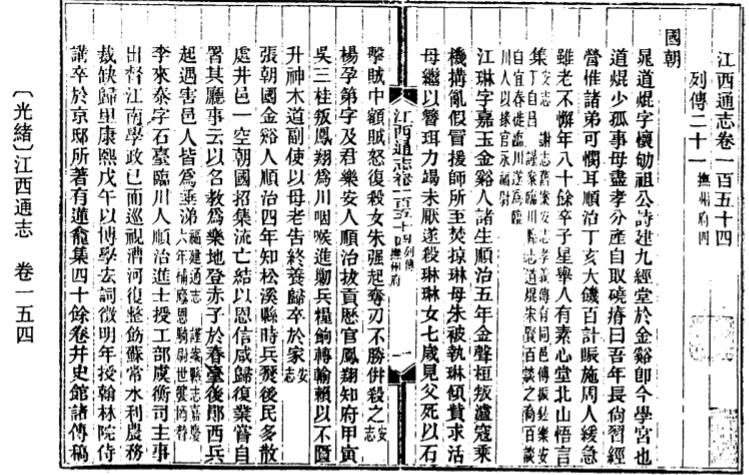 江西通志卷一百五十四
列傳二十一 撫州府四
國朝
晁道焜字懷劬祖公詩建九經堂於金谿卽今學宮也
道焜少孤事母盡孝分產自取磽瘠曰吾年長尙習經
營惟諸弟可憫耳順治丁亥大饑百計賑施周人緩急
雖老不懈年八十餘卒子星舉人有素心堂北山悟言
集
江琳字嘉玉金谿人諸生順治五年金聲桓叛瀘寇乘
機搆亂假冒援師所至焚掠琳母朱被執琳傾貲求活
母繼以簪珥力竭未厭遂殺琳琳女七歲見父死以石
江西通志卷一百五十四 列傳 撫州府 一
擊賊中顱賊怒復殺女朱强起奪刃不勝併殺之 安志
楊孕第字及君樂安人順治拔貢歷官鳳翔知府甲寅
吳三桂叛鳳翔爲川咽喉進勦兵糧餉轉輸賴以不匱
升神木道副使以母老告終養歸卒於家 安志
張朝國金谿人順治四年知松溪縣時兵燹後民多散
處井邑一空朝國招集流亡結以恩信咸歸復業嘗自
署其廳事云以名敎爲樂地登赤子於春臺後鄖西兵
起遇害邑人皆爲垂涕 福建通志
李來泰字石臺臨川人順治進士授工部虞衡司主事
出督江南學政已而巡視漕河復整飭蘇常水利農務
裁缺歸里康熙戊午以博學宏詞徵明年授翰林院侍
講卒於京邸所著有蓮龕集四十餘卷幷史館諸傳稿
〔光緒〕江西通志 卷一五四